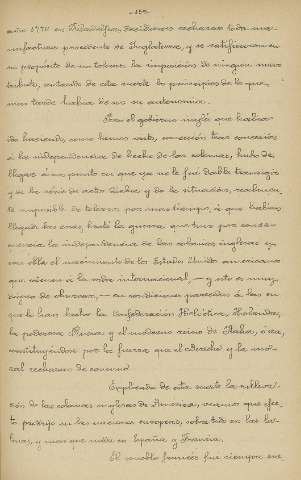 año 1770 en Filadelfia, decidieron rechazar toda ma-
nufactura procedente de Inglaterra, y se ratificaron en
su propósito de no tolerar la imposición de ningún nuevo
tributo, sentando de esta suerte los principios de lo que
mas tarde había de ser su autonomía.
Pero el gobierno inglés que había
do haciendo, como hemos visto, concesión tras concesión
á la independencia de hecho de las colonias, hubo de
llegar á un punto en que ya no le fué dable transigir
y la serie de actos dicha y de la situación,
imposible de tolerar por mas tiempo, á que habían
llegado las cosas, hasta la guerra que tuvo por conse-
cuencia la independencia de las colonias inglesas y
con ella el nacimiento de los Estados Unidos americanos
que vienen á la vida internacional, — y esto es muy
digno de observar, — en condiciones parecidas á las en
que lo han hecho la Confederación Helvética, Holanda,
la poderosa Prusia y el moderno reino de Italia, ó sea,
constituyéndose por la fuerza que el derecho y la mo-
ral rechazan de consuno.
Explicada de esta suerte la rebelión
de las colonias inglesas de America, veamos que efec-
to produjo en las naciones europeas, sobre todo en las la-
tinas, y mas que nadie en España y Francia.
El pueblo francés fué siempre ene